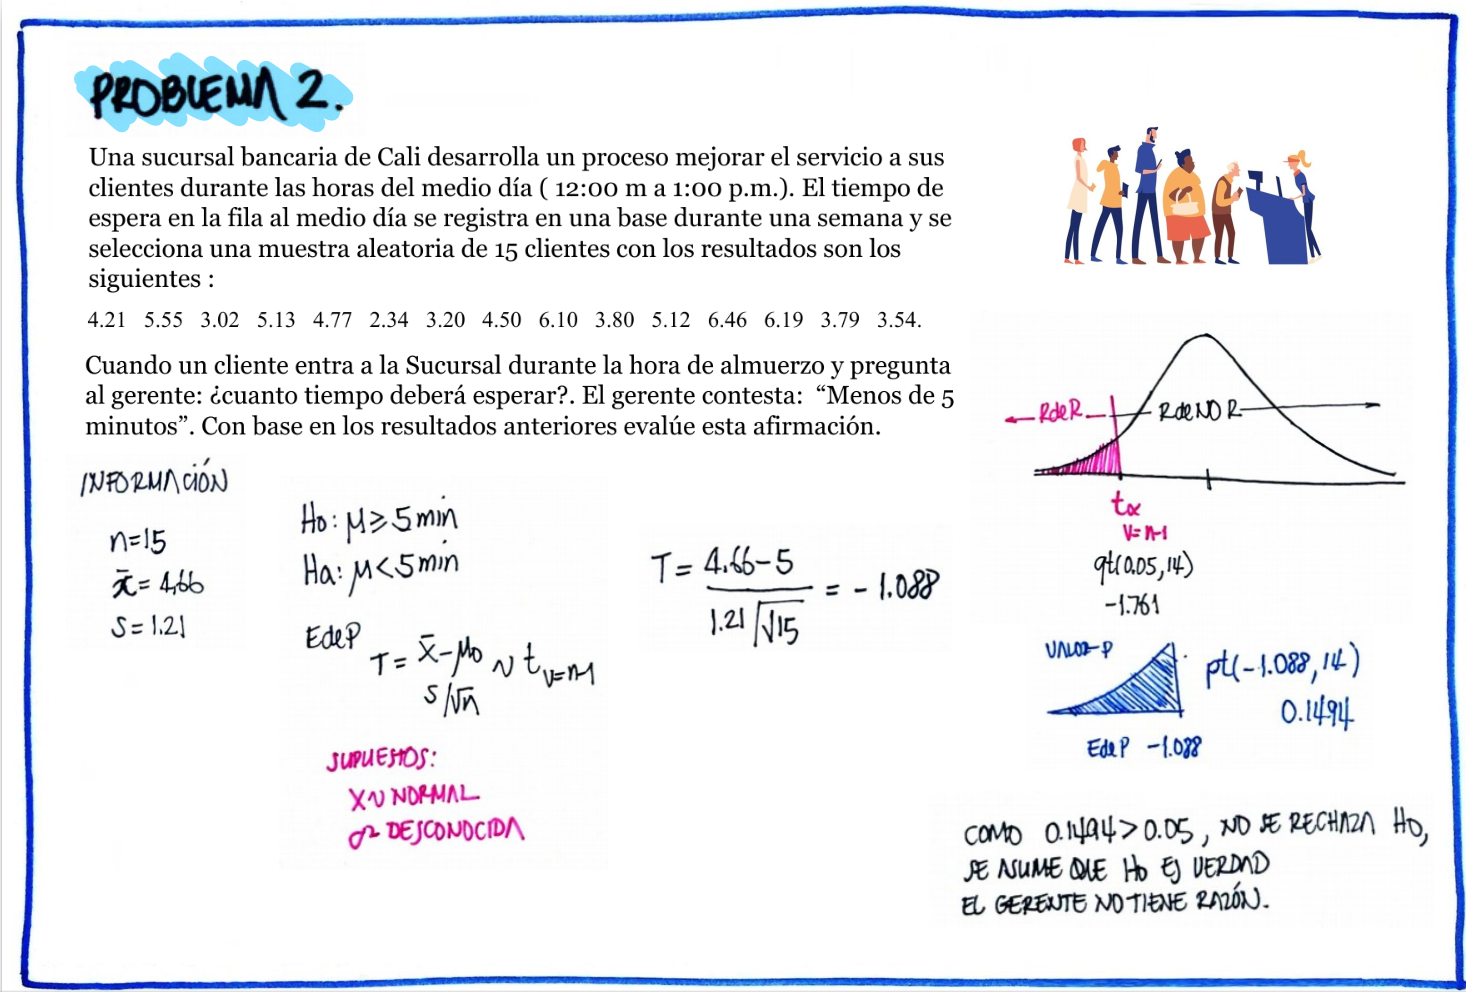 PROBLEMA 2.
Una sucursal bancaria de Cali desarrolla un proceso mejorar el servicio a sus
clientes durante las horas del medio día ( 12:00 m a 1:00 p.m.). El tiempo de
espera en la fila al medio día se registra en una base durante una semana y se
selecciona una muestra aleatoria de 15 clientes con los resultados son los
siguientes :
4.21 5.55 3.02 5.13 4.77 2.34 3.20 4.50 6.10 3.80 5.12 6.46 6.19 3.79 3.54.
Cuando un cliente entra a la Sucursal durante la hora de almuerzo y pregunta
al gerente: ¿cuanto tiempo deberá esperar?. El gerente contesta: “Menos de 5
minutos”. Con base en los resultados anteriores evalúe esta afirmación.
INFORMACIÓN
n=15
x̄ = 4,66
S = 1.21
Ho: μ ≥ 5 min
Ha: μ < 5 min
EdeP
T = x̄ - μo / S/√n ~ t v=n-1
SUPUESTOS:
X ~ NORMAL
σ² DESCONOCIDA
T = 4.66 - 5 / 1.21/√15 = - 1.088
RdeR
RdeNO R
tα
v= n-1
qt(0.05, 14)
-1.761
VALOR-P
pt(-1.088, 14)
0.1494
EdeP -1.088
COMO 0.1494 > 0.05, NO SE RECHAZA Ho,
SE ASUME QUE Ho ES VERDAD
EL GERENTE NO TIENE RAZÓN.